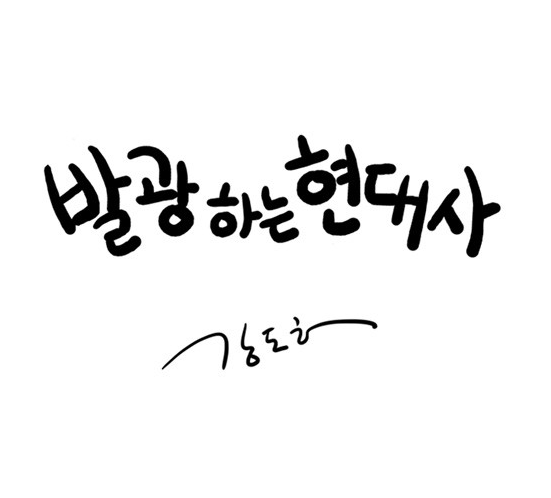 발광하는 현대사
강도하